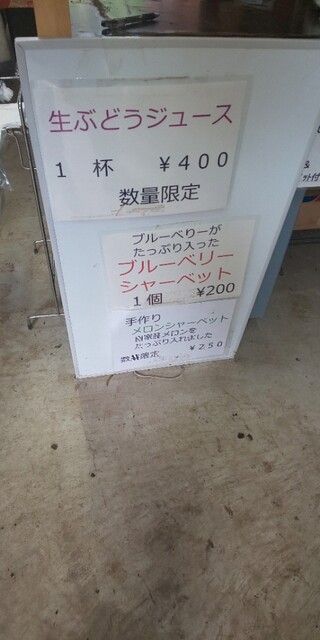 生ぶどうジュース
1 杯 ¥400
数量限定
ブルーベリーが
たっぷり入った
ブルーベリー
シャーベット
1個 ¥200
手作り
メロンシャーベット
メロンを
たっぷり入れました
¥250
数量限定